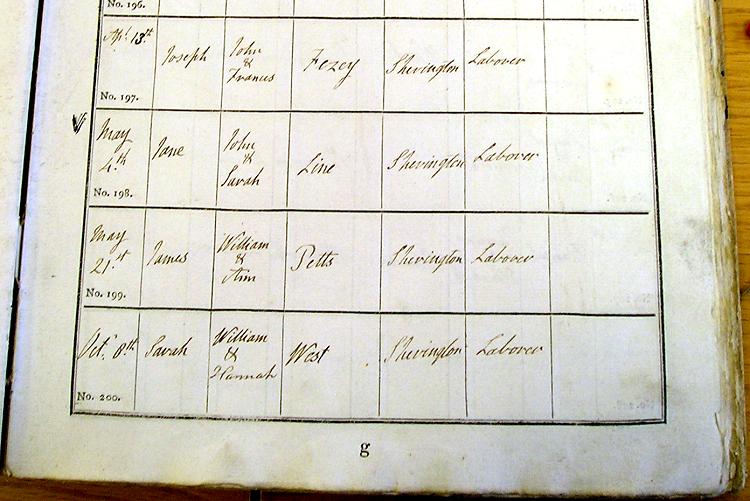 No. 196.
Apl 13th Joseph John & Frances Fezey Sherington Laborer
No. 197.
May 4th Jane John & Sarah Line Sherington Laborer
No. 198.
May 21st James William & Ann Petts Sherington Laborer
No. 199.
Oct 8th Sarah William & Hannah West Sherington Laborer
No. 200.
g